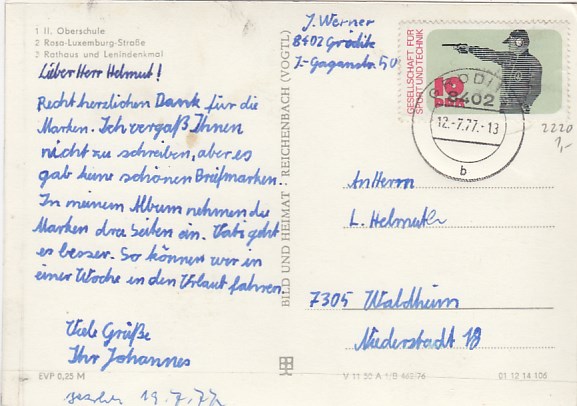 1 II. Oberschule
2 Rosa-Luxemburg-Straße
3 Rathaus und Lenindenkmal
Lieber Herr Helmut!
Recht herzlichen Dank für die
Marken. Ich vergaß Ihnen
nicht zu schreiben, aber es
gab keine schönen Briefmarken.
In meinem Album nehmen die
Marken dra Seiten an. Vati geht
es besser. So können wir in
einer Woche in den Urlaub fahren.
Viele Grüße
Ihr Johannes
EVP 0,25 M
19.7.77
BILD UND HEIMAT · REICHENBACH (VOGTL)
J. Werner
8402 Gröditz
J.-Gagarinstr. 50
GESELLSCHAFT FÜR
SPORT UND TECHNIK
10
DDR
GRÖDITZ
8402
12.-7.77.-13
b
2220
1,-
An Herrn
L. Helmuth
7305 Waldheim
Niederstadt 18
V 11 50 A 1/B 462/76
01 12 14 106